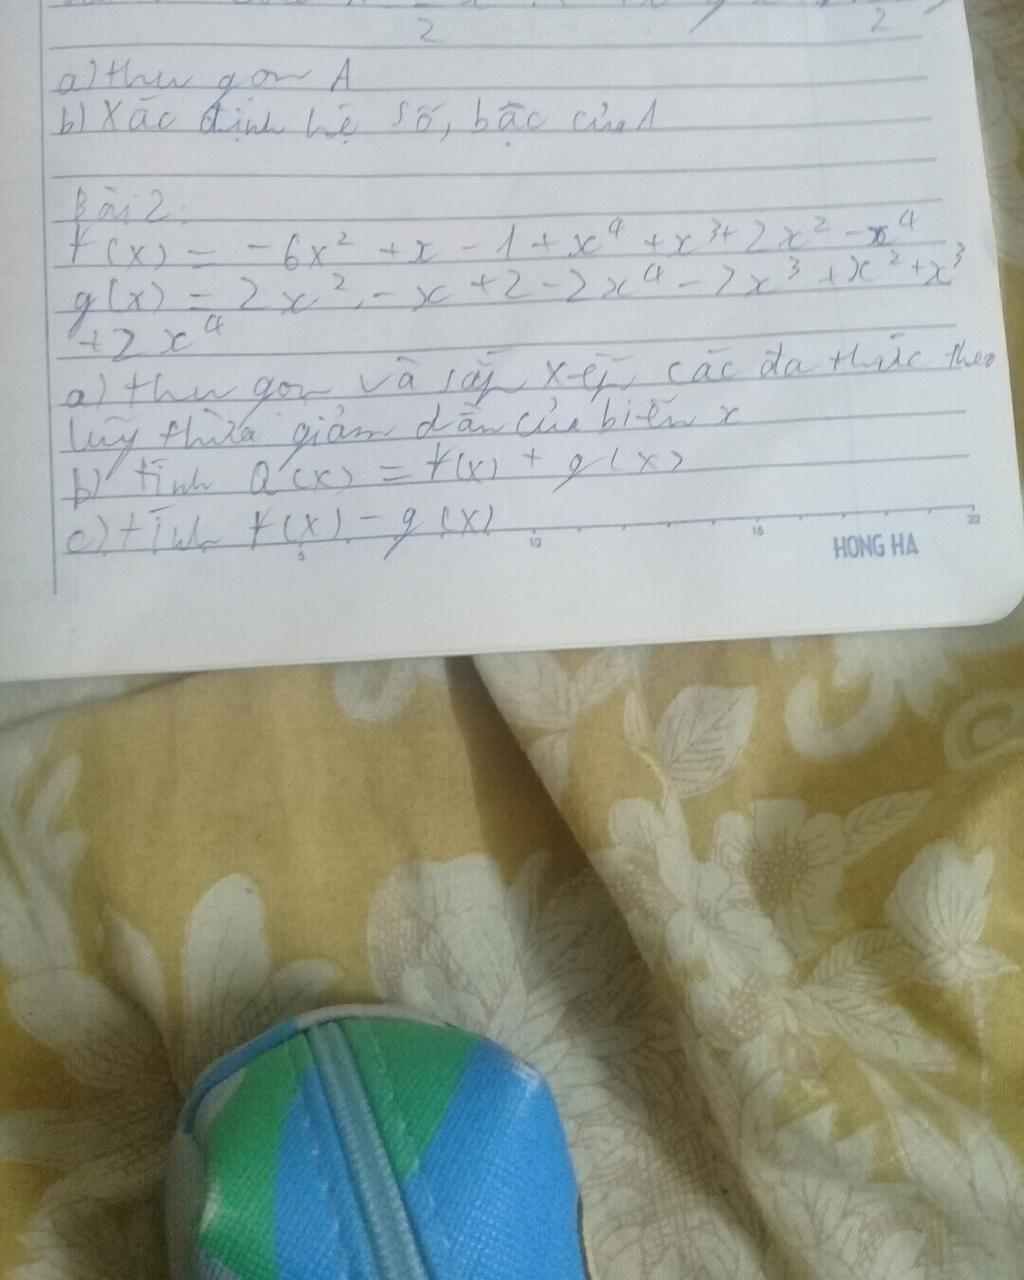 2 2
a) thu gọn A
b) Xác định hệ số, bậc của A
Bài 2:
f(x) = -6x² + x - 1 + x⁴ + x³ + 2x² - x⁴
g(x) = 2x² - x + 2 - 2x⁴ - 2x³ + x² + x³
+ 2x⁴
a) thu gọn và sắp xếp các đa thức theo
luỹ thừa giảm dần của biến x
b) tính Q(x) = f(x) + g(x)
c) tính f(x) - g(x)
5 10 15 20
HONG HA